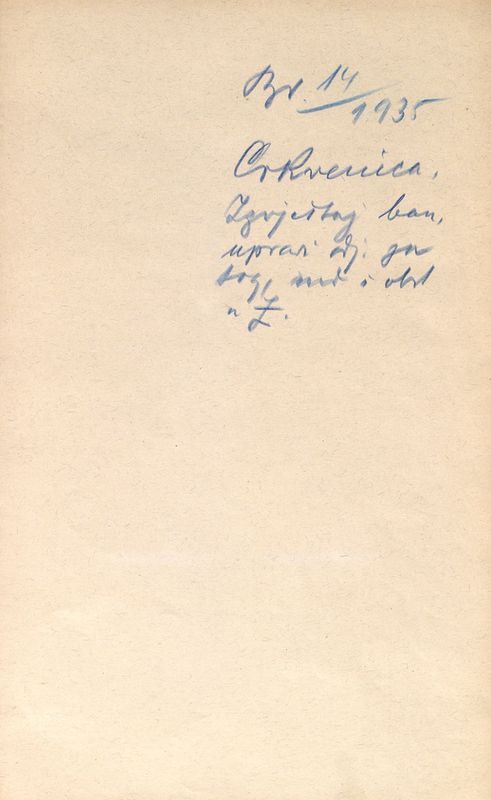 Br. 14/1935
Crkvenica.
Izvještaj ban.
upravi odj. za
trg, ind i obrt
u Z.